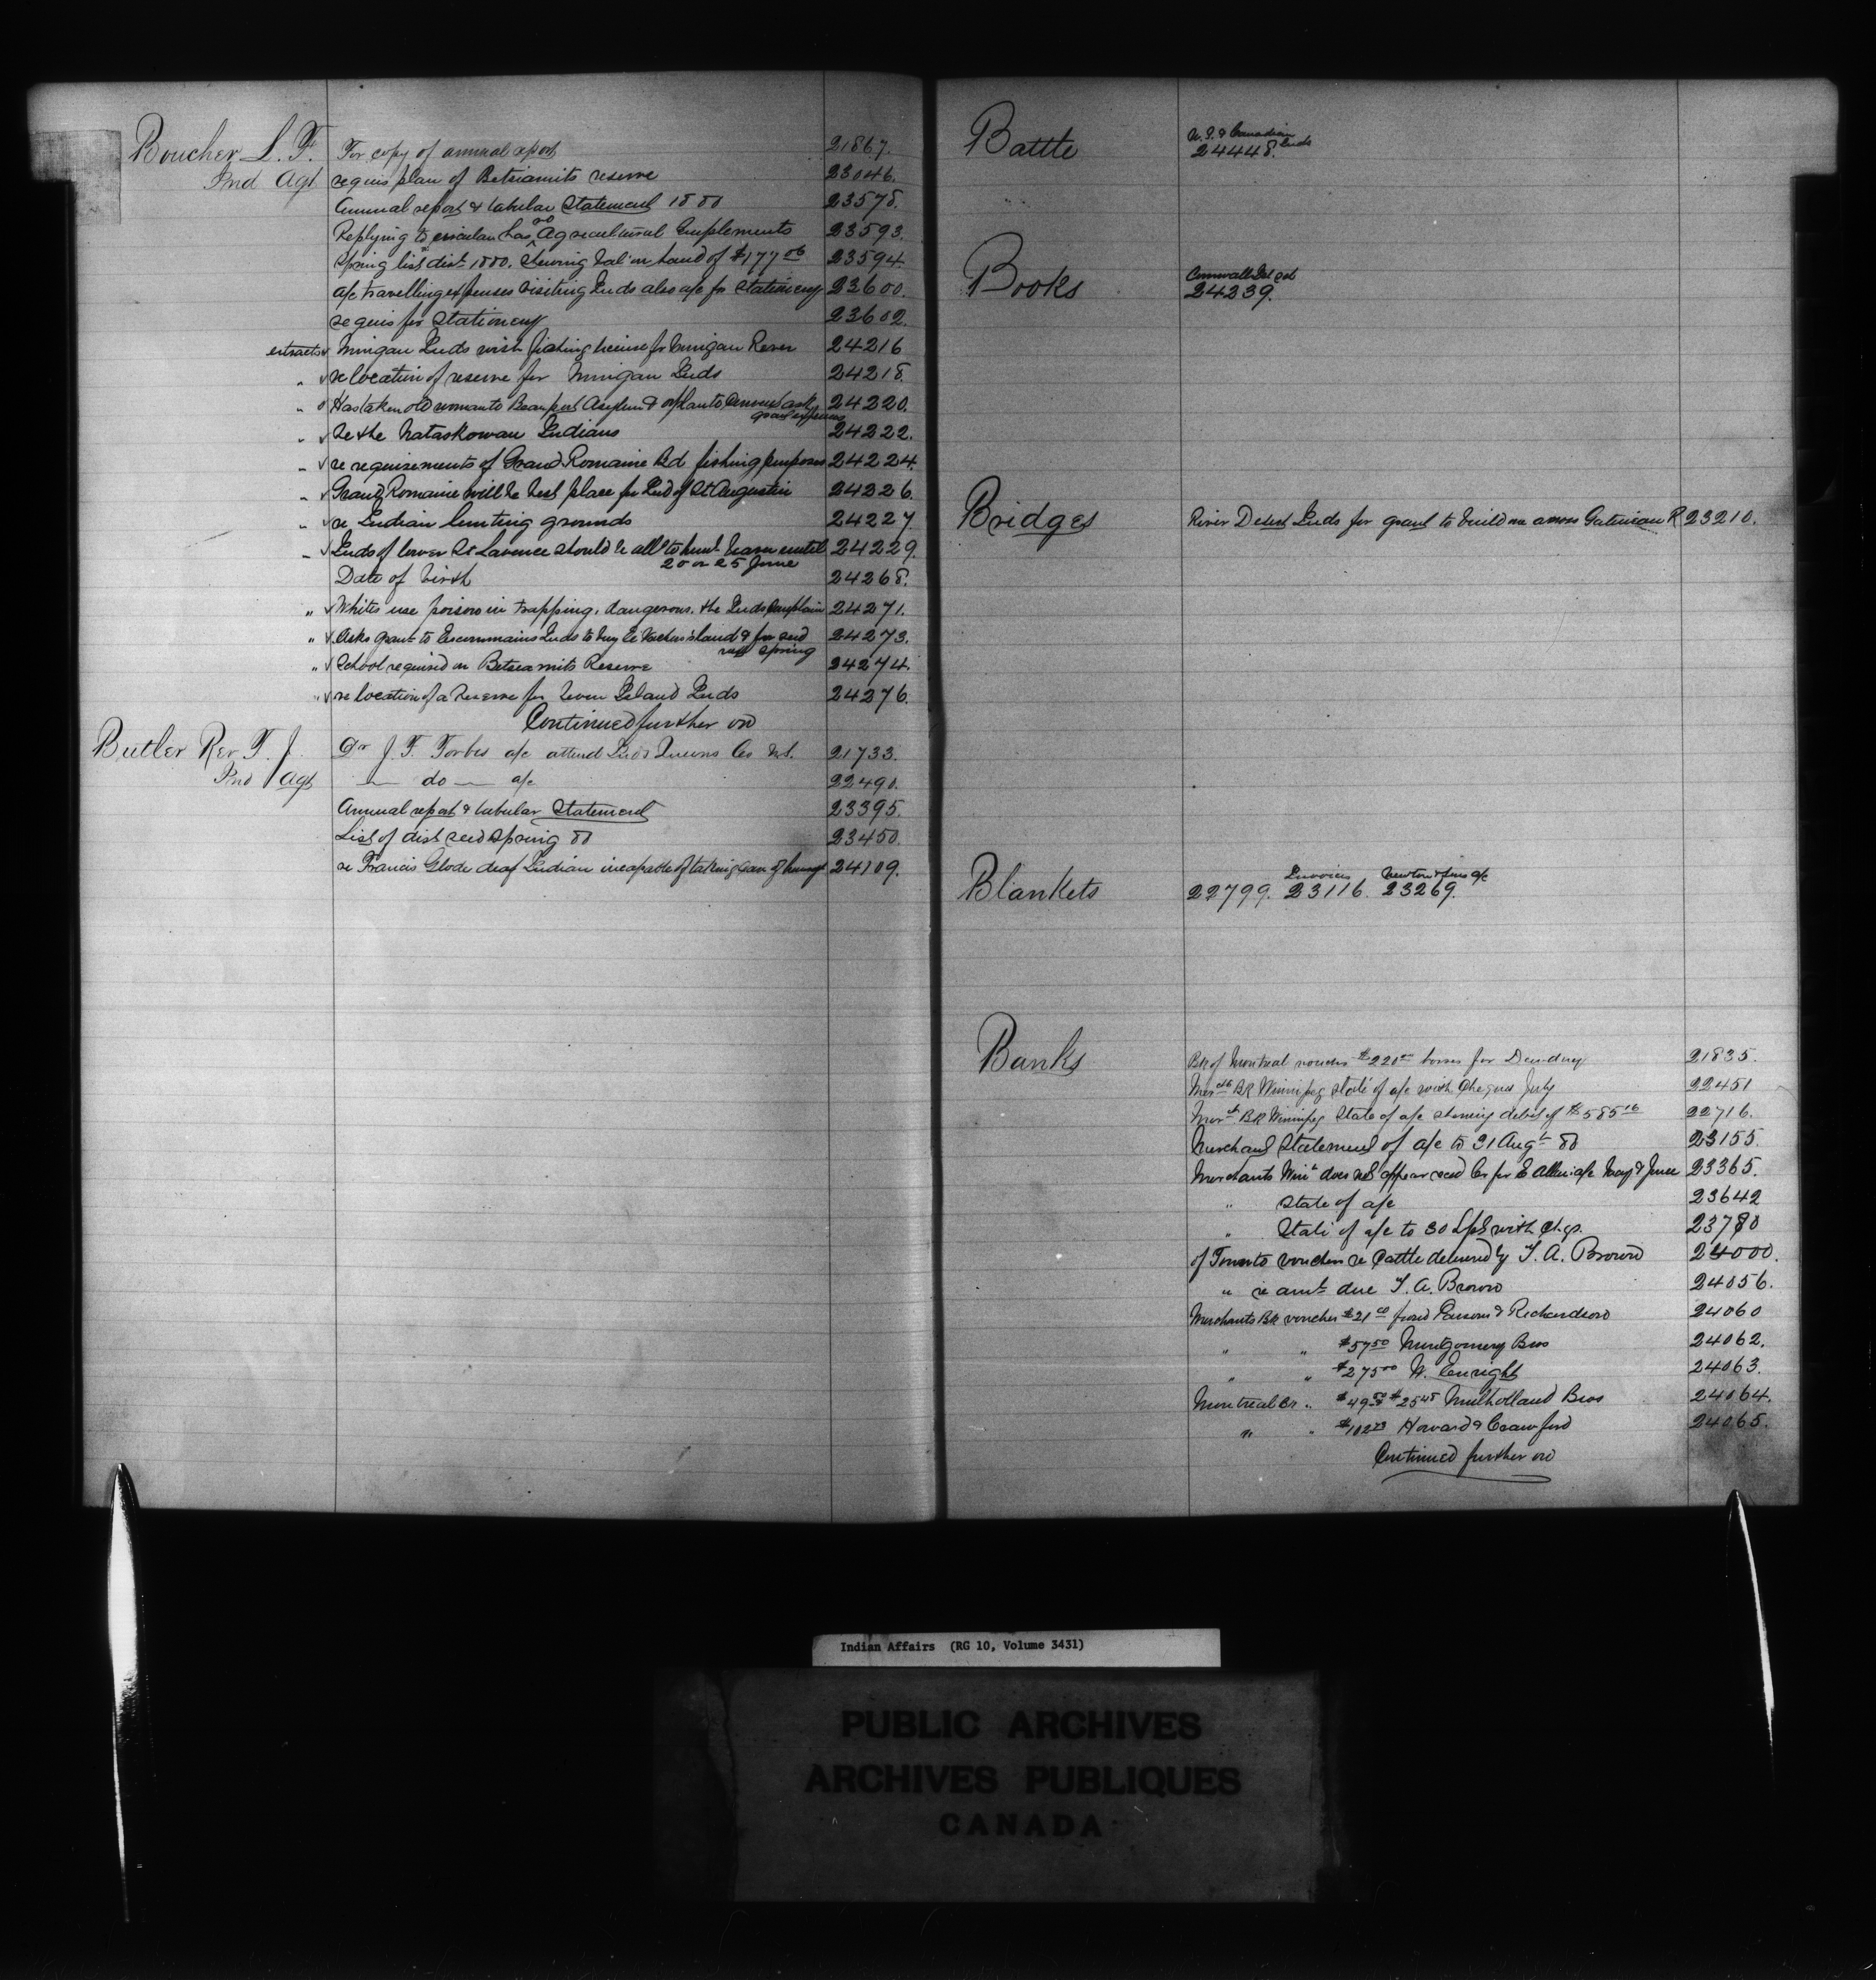 Boucher L. F. For copy of annual report 21867.
Ind Agt requis plan of Betsiamits reserve 23046.
Annual report & tabular Statement 1880 23578.
Replying to circular has no Agricultural Implements 23593.
Spring list dist 1880. Shewing bal in hand of $177 06 23594.
a/c travelling expenses visiting Inds also a/c for stationery 23600.
requis for Stationery 23602.
extracts v Mingan Inds wish fishing license for Mingan River 24216
" v re location of reserve for Mingan Inds 24218.
" Has taken old woman to Beauport Asylum & orphan to ask 24220.
" v Re the Nataskowan Indians 24222.
" v re requirements of Grand Romaine Bd fishing purposes 24224.
" v Grand Romaine will be best place for Ind of St Augustin 24226.
" v re Indian hunting grounds 24227.
" v Inds of lower St Lawrence should be alld to hunt until 24229.
20 or 25 June
Date of birth 24268.
" v Whites use poison in trapping, dangerous, the Inds complain 24271.
" v Asks grant to Escoumains Inds to buy island & for seed 24273.
next spring
" v School required on Betseamits Reserve 24274.
" v re location of a Reserve for Seven Island Inds 24276.
Continued further on
Butler Rev T. J. Dr J. F. Forbes a/c attend Inds Queens Co N.S. 21733.
Ind Agt — do — a/c 22490.
Annual report & tabular Statement 23395.
List of dist seed spring 80 23450.
re Francis Glode deaf Indian incapable of taking care of himself 24109.
Battle U.S. & Canadian Inds
24448.
Books Cornwall
24239.
Bridges River Desert Inds for grant to build one across Gatineau R 23210.
Invoices Newton & Sons a/c
Blankets 22799. 23116. 23269.
Banks Bk of Montreal voucher $220 00 for Dewdney 21835.
Merchts Bk Winnipeg state of a/c with cheques July 22451
Mercht Bk Winnipeg State of a/c shewing debit of $585 16 22716.
Merchant Statement of a/c to 31 Augt 80 23155.
Merchants Winn does not appear recd for E Allen a/c May & June 23365.
" State of a/c 23642
" State of a/c to 30 Sept with chqs. 23780
of Toronto vouchers re Cattle delivered by T. A. Brown 24000.
" re amt due T. A. Brown 24056.
Merchants Bk voucher $21 00 Parsons & Richardson 24060
" " $57 50 Montgomery Bros 24062.
" " $275 00 W. Enright 24063.
Montreal Br " $49 50 $25 45 Mulholland Bros 24064.
" " $102 73 Howard & Crawford 24065.
Continued further on
Indian Affairs (RG 10, Volume 3431)
PUBLIC ARCHIVES
ARCHIVES PUBLIQUES
CANADA